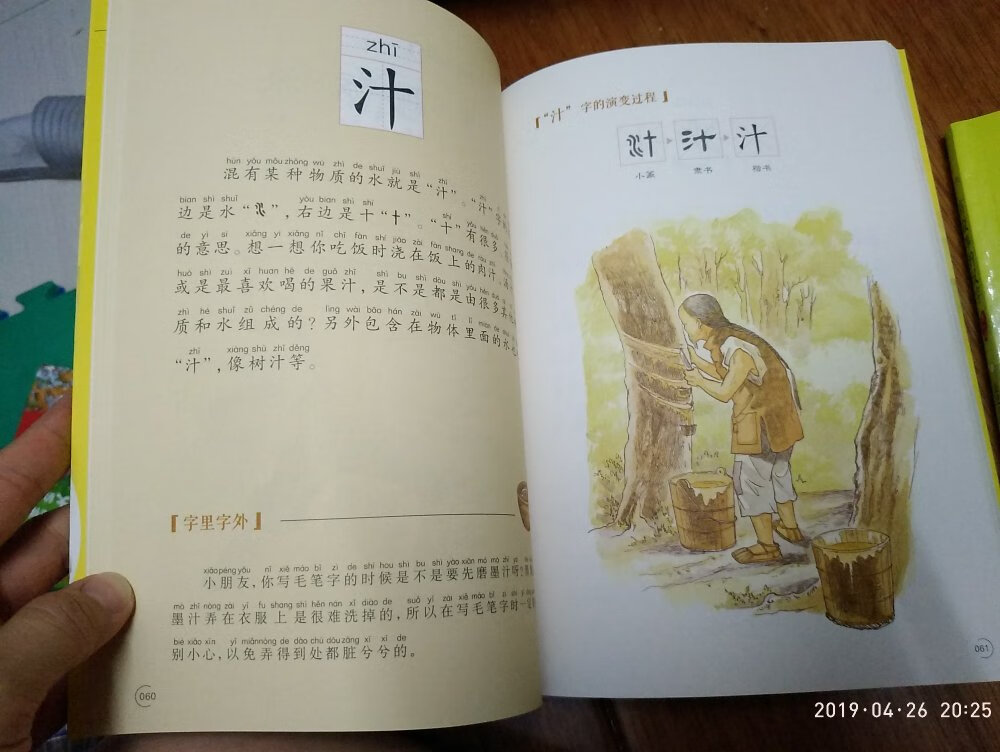 zhī
汁
hùn yǒu mǒu zhǒng wù zhì de shuǐ jiù shì zhī zhī
混有某种物质的水就是“汁”。“汁”字
biān shì shuǐ yòu biān shì shí shí yǒu hěn duō
边是水“氵”，右边是十“十”。“十”有很多
de yì si xiǎng yi xiǎng nǐ chī fàn shí jiāo zài fàn shang de ròu zhī
的意思。想一想你吃饭时浇在饭上的肉汁、
huò shì zuì xǐ huan hē de guǒ zhī shì bu shì dōu shì yóu hěn duō
或是最喜欢喝的果汁，是不是都是由很多
zhì hé shuǐ zǔ chéng de lìng wài bāo hán zài wù tǐ lǐ miàn de shuǐ
质和水组成的？另外包含在物体里面的水
zhī xiàng shù zhī děng
“汁”，像树汁等。
【字里字外】
xiǎo péng yǒu nǐ xiě máo bǐ zì de shí hou shì bu shì yào xiān mó mò zhī ya
小朋友，你写毛笔字的时候是不是要先磨墨汁呀？
mò zhī nòng zài yī fu shang shì hěn nán xǐ diào de suǒ yǐ zài xiě máo bǐ zì shí yí
墨汁弄在衣服上是很难洗掉的，所以在写毛笔字时一
bié xiǎo xīn yǐ miǎn nòng de dào chù dōu zāng xī xī de
别小心，以免弄得到处都脏兮兮的。
060
【“汁”字的演变过程】
汁 汁 汁
小篆 隶书 楷书
061
2019·04·26 20:25